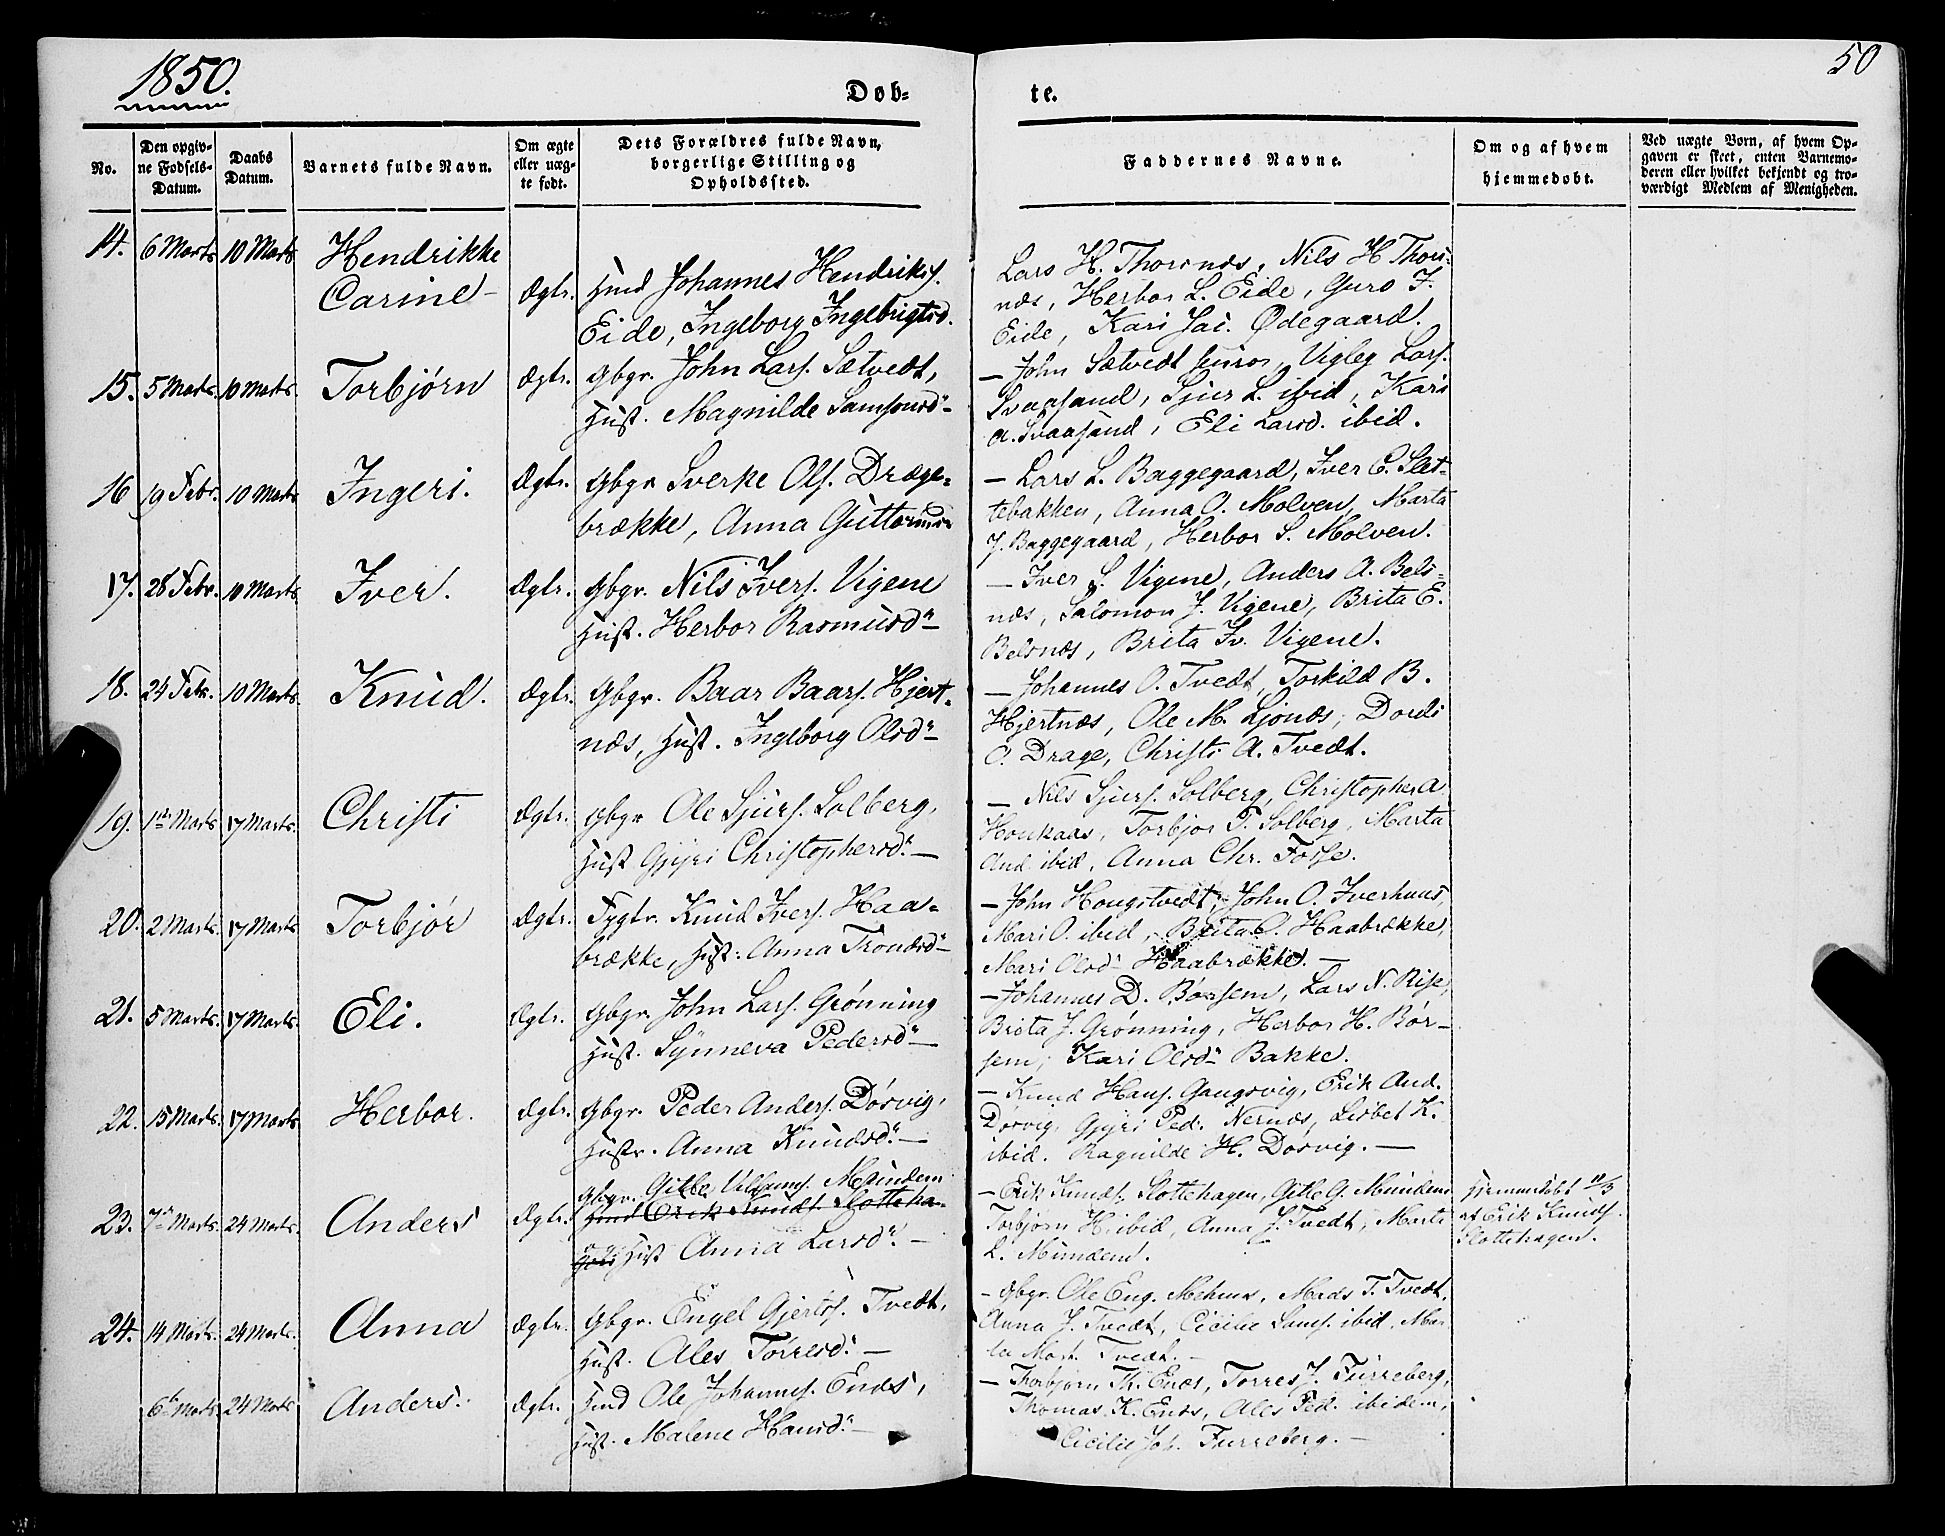 1850.
50
Døb-
te.
No.
Den opgiv-
ne Fødsels-
Datum.
Daabs
Datum.
Barnets fulde Navn.
Om ægte
eller uæg-
te født.
Dets Forældres fulde Navn,
borgerlige Stilling og
Opholdssted.
Faddernes Navne.
Om og af hvem
hjemmedøbt.
Ved uægte Børn, af hvem Op-
gaven er skeet, enten Barnemo-
deren eller hvilket bekjendt og tro-
værdigt Medlem af Menigheden.
14. 6 Marts 10 Marts Hendrikke
Carine - Ægtr.
Hmd Johannes Hendriks.
Eide, Ingeborg Ingebrigtsd.
Lars H. Thorsnæs, Nils H Thors-
næs, Herbor L. Eide, Guro J.
Eide, Kari Jac. Ødegaard.
15. 5 Marts. 10 Marts. Torbjørn Ægtr.
Gbgr. John Lars. Sætvedt,
Hust. Magnilde Samsonsd. -
- John Sætvedt junior, Vigleg Lars.
Svaasand, Sjur L. ibid, Kari
A. Svaasand, Eli Larsd. ibid.
16 19 Febr. 10 Marts Ingeri. Ægtr.
Gbgr Sverke Ols. Dræge-
brække, Anna Guttormsd.
- Lars L. Baggegaard, Iver C. Slet-
tebakken, Anna O. Molven, Marta
J. Baggegaard, Herbor S. Molven.
17. 28 Febr. 10 Marts Iver. Ægtr.
Gbgr. Nils Ivers. Vigene
Hust. Herbor Rasmusd. -
- Iver S. Vigene, Anders A. Bels-
næs, Salomon J. Vigene, Brita E.
Belsnæs, Brita Iv. Vigene.
18. 24 Febr. 10 Marts. Knud. Ægtr.
Gbgr. Baar Baars. Hjert-
næs, Hust. Ingeborg Olsd. -
- Johannes O. Tvedt, Torkild B.
Hjertnæs, Ole M. Ljonæs, Dordi
O. Drage, Christi A. Tvedt.
19. 1ste Marts 17 Marts. Christi Ægtr.
Gbgr Ole Sjurs. Solberg,
Hust Gjyri Christophersd. -
- Nils Sjurs. Solberg, Christopher A
Houkaas, Torbjør P. Solberg, Marta
And ibid, Anna Chr. Fosse.
20. 2 Marts. 17 Marts. Torbjør Ægtr.
Fygtr. Knud Ivers. Haa-
brække, Hust. Anna Trondsd. -
- John Hougstvedt, John O. Iverhuus,
Mari O. ibid, Brita O. Haabrække,
Mari Olsd. Haabrække. -
21. 5 Marts. 17 Marts. Eli. Ægtr.
Gbgr. John Lars. Grønning
Hust. Synneva Pedersd. -
- Johannes D. Børsem, Lars N. Rise,
Brita J. Grønning, Herbor H. Bør-
sem, Kari Olsd. Bakke.
22. 15 Marts. 17 Marts Herbor. Ægtr.
Gbgr. Peder Anders. Døsvig,
Hustr. Anna Knudsd. -
- Knud Hans. Gangsvig, Erik And.
Døsvig, Gjyri Ped. Nernæs, Lisbet K.
ibid. Ragnilde H. Døsvig. -
23. 7de Marts 24 Marts. Anders Ægtr.
Gbgr. Gitle Villums. Mundem
Hmd Erik Knuds. Slotteha-
og Hust Anna Larsd. -
- Erik Knuds. Slottehagen, Gitle G. Mundem
Torbjørn H. ibid, Anna J. Tvedt, Marta
L. Mundem.
Hjemmedøbt 11/3
af Erik Knuds.
Slottehagen.
24. 14 Marts. 24 Marts. Anna Ægtr.
Gbgr. Engel Gjerts. Tvedt,
Hust. Ales Torresd. -
- Gbgr. Ole Eng. Mehus, Mads T. Tvedt,
Anna J. Tvedt, Cicilie Sams. ibid. Mar-
ta Mort. Tvedt. -
6te Marts 24 Marts Anders. Ægtr.
Hmd Ole Johannes. Enæs,
Hust. Malene Hansd. -
- Thorbjørn Th. Enæs, Torres J. Furreberg,
Thomas K. Enæs, Ales Ped. ibidem,
Cicilie Joh. Furreberg. -